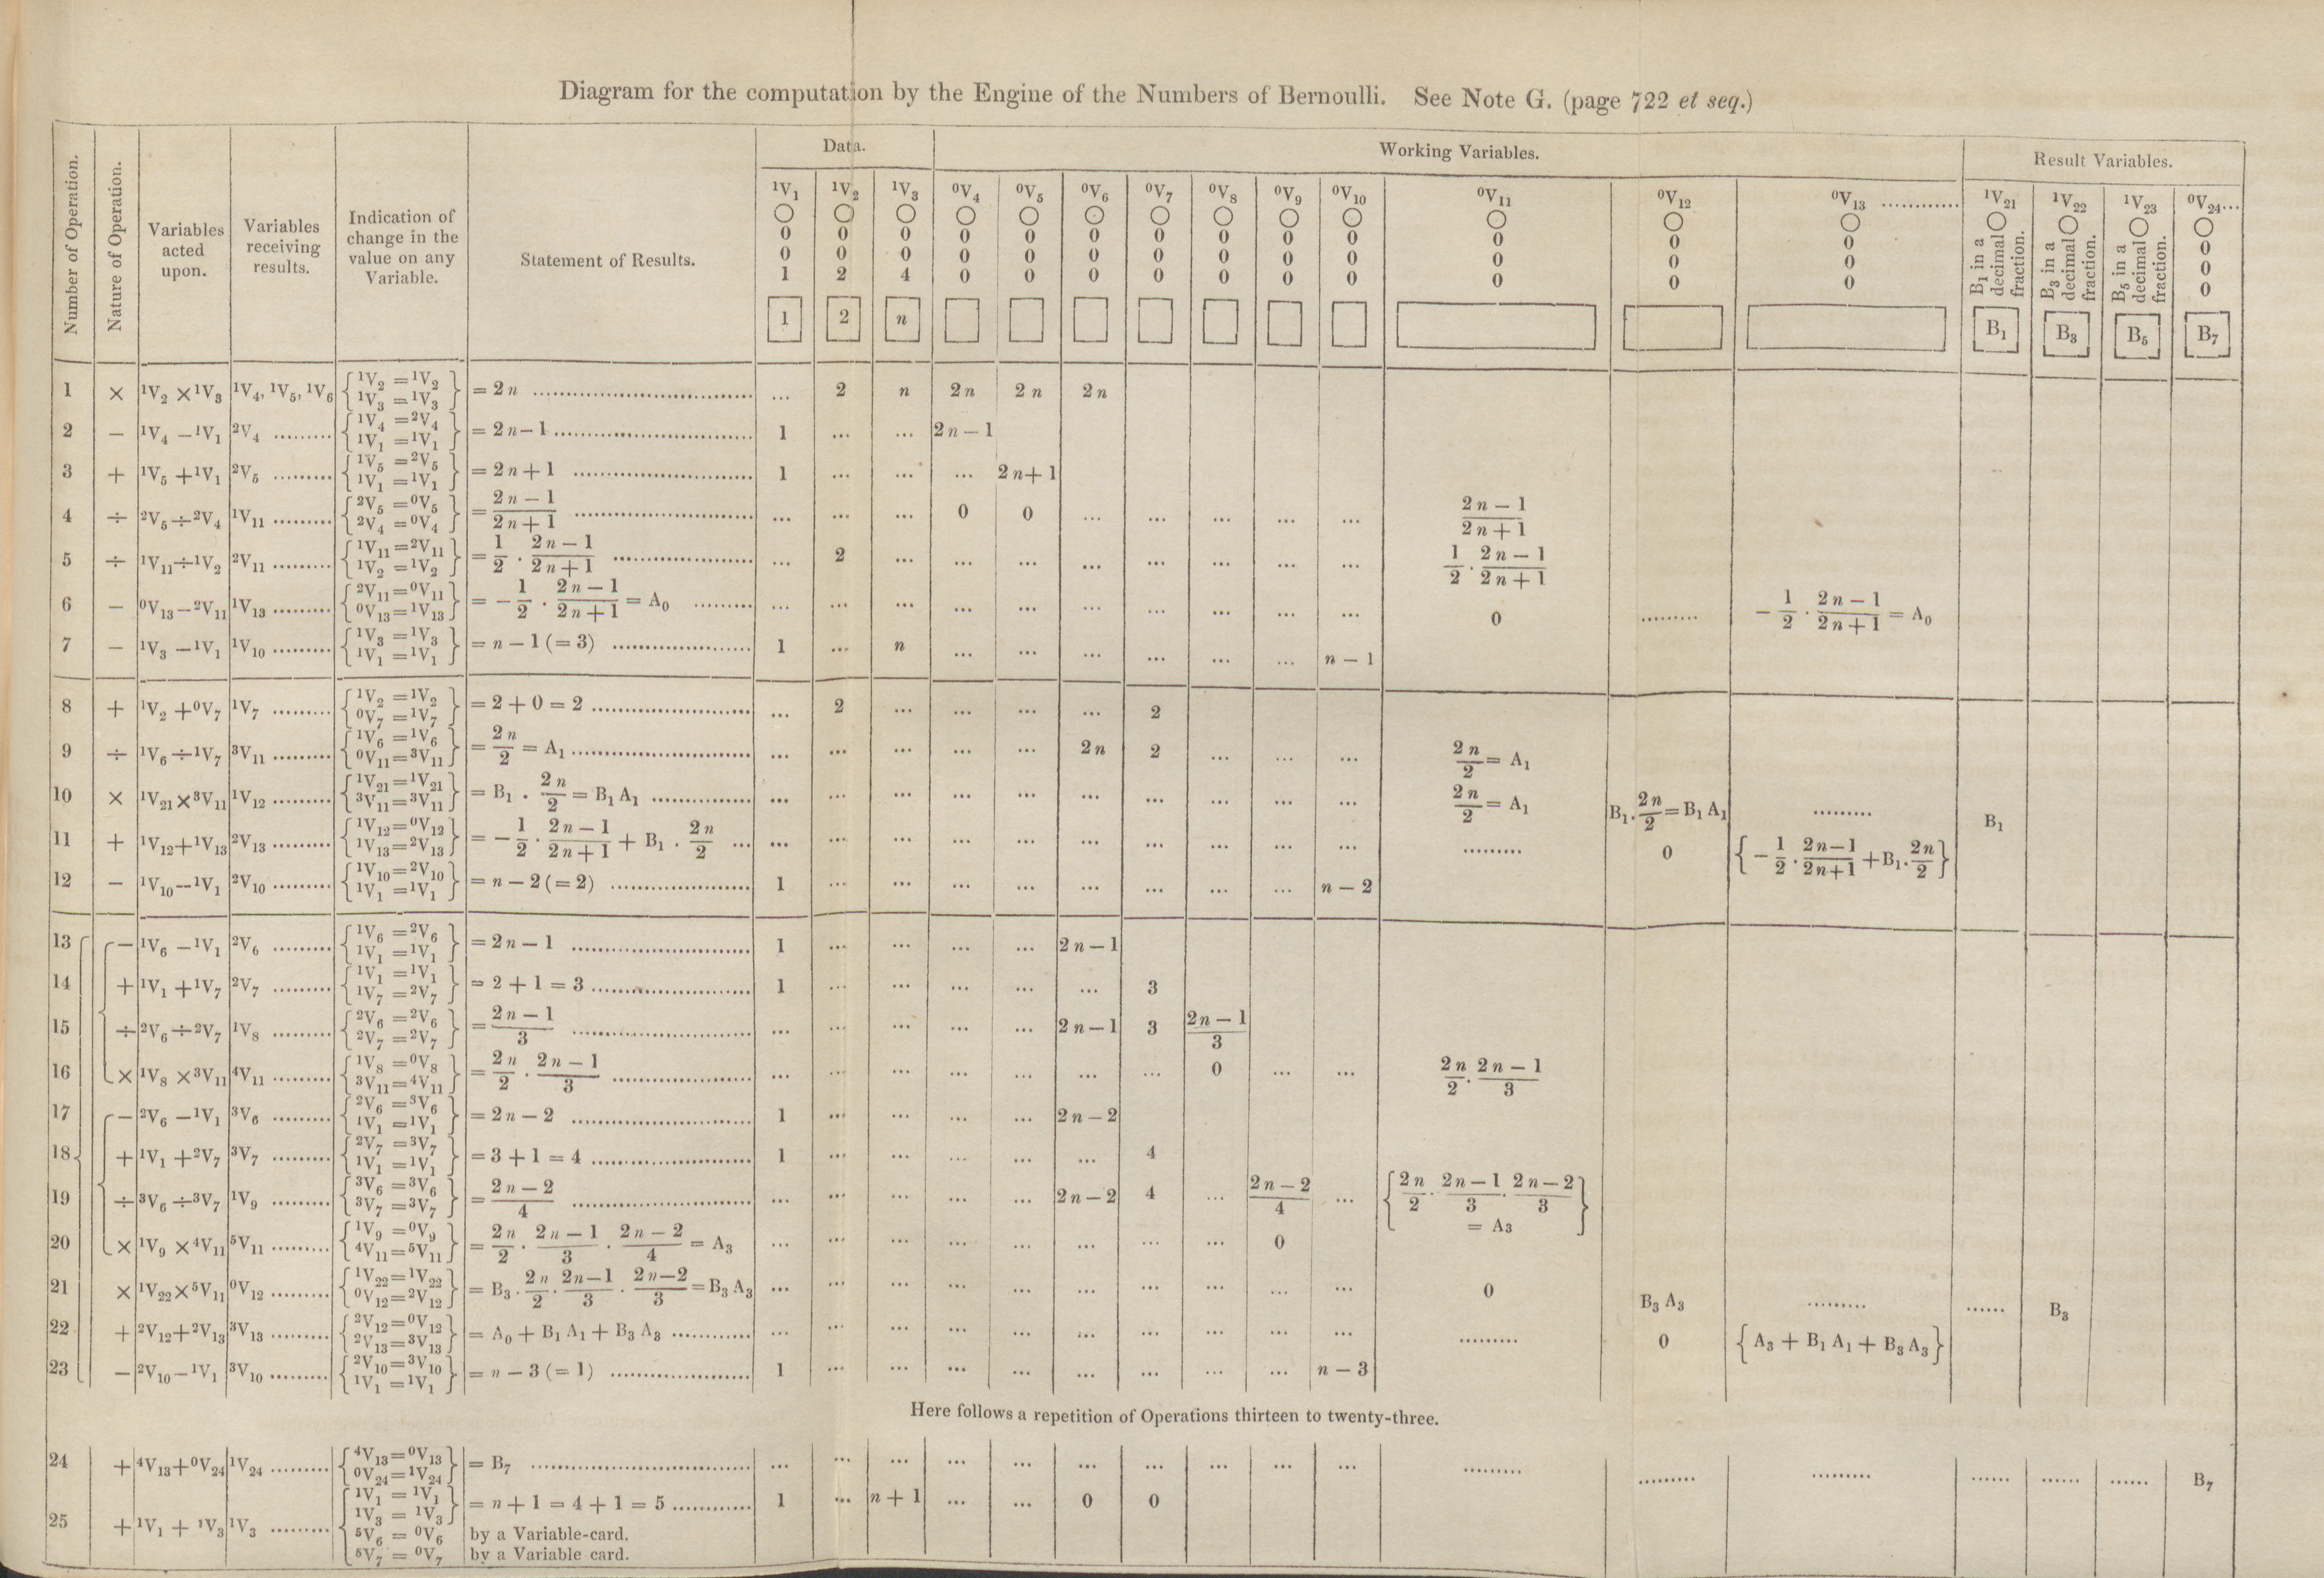 Diagram for the computation by the Engine of the Numbers of Bernoulli. See Note G. (page 722 et seq.)
Number of Operation. | Nature of Operation. | Variables acted upon. | Variables receiving results. | Indication of change in the value on any Variable. | Statement of Results. | Data. | Working Variables. | Result Variables.
¹V₁ ○ 0 0 1 [1] | ¹V₂ ○ 0 0 2 [2] | ¹V₃ ○ 0 0 4 [n] | ⁰V₄ ○ 0 0 0 | ⁰V₅ ○ 0 0 0 | ⁰V₆ ○ 0 0 0 | ⁰V₇ ○ 0 0 0 | ⁰V₈ ○ 0 0 0 | ⁰V₉ ○ 0 0 0 | ⁰V₁₀ ○ 0 0 0 | ⁰V₁₁ ○ 0 0 0 | ⁰V₁₂ ○ 0 0 0 | ⁰V₁₃ ............ ○ 0 0 0 | ¹V₂₁ ○ B₁ in a decimal fraction. [B₁] | ¹V₂₂ ○ B₃ in a decimal fraction. [B₃] | ¹V₂₃ ○ B₅ in a decimal fraction. [B₅] | ⁰V₂₄... ○ 0 0 0 [B₇]
1 | × | ¹V₂ × ¹V₃ | ¹V₄, ¹V₅, ¹V₆ | {¹V₂ = ¹V₂ ¹V₃ = ¹V₃} | = 2n ...... | ... | 2 | n | 2n | 2n | 2n
2 | − | ¹V₄ − ¹V₁ | ²V₄ ...... | {¹V₄ = ²V₄ ¹V₁ = ¹V₁} | = 2n − 1 ...... | 1 | ... | ... | 2n − 1
3 | + | ¹V₅ + ¹V₁ | ²V₅ ...... | {¹V₅ = ²V₅ ¹V₁ = ¹V₁} | = 2n + 1 ...... | 1 | ... | ... | ... | 2n + 1
4 | ÷ | ²V₅ ÷ ²V₄ | ¹V₁₁ ...... | {²V₅ = ⁰V₅ ²V₄ = ⁰V₄} | = (2n − 1)/(2n + 1) ...... | ... | ... | ... | 0 | 0 | ... | ... | ... | ... | ... | (2n − 1)/(2n + 1)
5 | ÷ | ¹V₁₁ ÷ ¹V₂ | ²V₁₁ ...... | {¹V₁₁ = ²V₁₁ ¹V₂ = ¹V₂} | = 1/2 · (2n − 1)/(2n + 1) ...... | ... | 2 | ... | ... | ... | ... | ... | ... | ... | ... | 1/2 · (2n − 1)/(2n + 1)
6 | − | ⁰V₁₃ − ²V₁₁ | ¹V₁₃ ...... | {²V₁₁ = ⁰V₁₁ ⁰V₁₃ = ¹V₁₃} | = − 1/2 · (2n − 1)/(2n + 1) = A₀ ...... | ... | ... | ... | ... | ... | ... | ... | ... | ... | ... | 0 | ...... | − 1/2 · (2n − 1)/(2n + 1) = A₀
7 | − | ¹V₃ − ¹V₁ | ¹V₁₀ ...... | {¹V₃ = ¹V₃ ¹V₁ = ¹V₁} | = n − 1 (= 3) ...... | 1 | ... | n | ... | ... | ... | ... | ... | ... | n − 1
8 | + | ¹V₂ + ⁰V₇ | ¹V₇ ...... | {¹V₂ = ¹V₂ ⁰V₇ = ¹V₇} | = 2 + 0 = 2 ...... | ... | 2 | ... | ... | ... | ... | 2
9 | ÷ | ¹V₆ ÷ ¹V₇ | ³V₁₁ ...... | {¹V₆ = ¹V₆ ⁰V₁₁ = ³V₁₁} | = 2n/2 = A₁ ...... | ... | ... | ... | ... | ... | 2n | 2 | ... | ... | ... | 2n/2 = A₁
10 | × | ¹V₂₁ × ³V₁₁ | ¹V₁₂ ...... | {¹V₂₁ = ¹V₂₁ ³V₁₁ = ³V₁₁} | = B₁ . 2n/2 = B₁ A₁ ...... | ... | ... | ... | ... | ... | ... | ... | ... | ... | ... | 2n/2 = A₁ | B₁. 2n/2 = B₁ A₁ | ...... | B₁
11 | + | ¹V₁₂ + ¹V₁₃ | ²V₁₃ ...... | {¹V₁₂ = ⁰V₁₂ ¹V₁₃ = ²V₁₃} | = − 1/2 · (2n − 1)/(2n + 1) + B₁ . 2n/2 ... | ... | ... | ... | ... | ... | ... | ... | ... | ... | ... | ...... | 0 | {− 1/2 · (2n − 1)/(2n + 1) + B₁. 2n/2}
12 | − | ¹V₁₀ − ¹V₁ | ²V₁₀ ...... | {¹V₁₀ = ²V₁₀ ¹V₁ = ¹V₁} | = n − 2 (= 2) ...... | 1 | ... | ... | ... | ... | ... | ... | ... | ... | n − 2
13 | − | ¹V₆ − ¹V₁ | ²V₆ ...... | {¹V₆ = ²V₆ ¹V₁ = ¹V₁} | = 2n − 1 ...... | 1 | ... | ... | ... | ... | 2n − 1
14 | + | ¹V₁ + ¹V₇ | ²V₇ ...... | {¹V₁ = ¹V₁ ¹V₇ = ²V₇} | = 2 + 1 = 3 ...... | 1 | ... | ... | ... | ... | ... | 3
15 | ÷ | ²V₆ ÷ ²V₇ | ¹V₈ ...... | {²V₆ = ²V₆ ²V₇ = ²V₇} | = (2n − 1)/3 ...... | ... | ... | ... | ... | ... | 2n − 1 | 3 | (2n − 1)/3
16 | × | ¹V₈ × ³V₁₁ | ⁴V₁₁ ...... | {¹V₈ = ⁰V₈ ³V₁₁ = ⁴V₁₁} | = 2n/2 · (2n − 1)/3 ...... | ... | ... | ... | ... | ... | ... | ... | 0 | ... | ... | 2n/2 · (2n − 1)/3
17 | − | ²V₆ − ¹V₁ | ³V₆ ...... | {²V₆ = ³V₆ ¹V₁ = ¹V₁} | = 2n − 2 ...... | 1 | ... | ... | ... | ... | 2n − 2
18 | + | ¹V₁ + ²V₇ | ³V₇ ...... | {²V₇ = ³V₇ ¹V₁ = ¹V₁} | = 3 + 1 = 4 ...... | 1 | ... | ... | ... | ... | ... | 4
19 | ÷ | ³V₆ ÷ ³V₇ | ¹V₉ ...... | {³V₆ = ³V₆ ³V₇ = ³V₇} | = (2n − 2)/4 ...... | ... | ... | ... | ... | ... | 2n − 2 | 4 | ... | (2n − 2)/4 | ... | {2n/2 · (2n − 1)/3 · (2n − 2)/3 = A₃}
20 | × | ¹V₉ × ⁴V₁₁ | ⁵V₁₁ ...... | {¹V₉ = ⁰V₉ ⁴V₁₁ = ⁵V₁₁} | = 2n/2 · (2n − 1)/3 · (2n − 2)/4 = A₃ | ... | ... | ... | ... | ... | ... | ... | ... | 0
21 | × | ¹V₂₂ × ⁵V₁₁ | ⁰V₁₂ ...... | {¹V₂₂ = ¹V₂₂ ⁰V₁₂ = ²V₁₂} | = B₃ . 2n/2 · (2n − 1)/3 · (2n − 2)/3 = B₃ A₃ | ... | ... | ... | ... | ... | ... | ... | ... | ... | ... | 0 | B₃ A₃ | ...... | ...... | B₃
22 | + | ²V₁₂ + ²V₁₃ | ³V₁₃ ...... | {²V₁₂ = ⁰V₁₂ ²V₁₃ = ³V₁₃} | = A₀ + B₁ A₁ + B₃ A₃ ...... | ... | ... | ... | ... | ... | ... | ... | ... | ... | ... | ...... | 0 | {A₃ + B₁ A₁ + B₃ A₃}
23 | − | ²V₁₀ − ¹V₁ | ³V₁₀ ...... | {²V₁₀ = ³V₁₀ ¹V₁ = ¹V₁} | = n − 3 (= 1) ...... | 1 | ... | ... | ... | ... | ... | ... | ... | ... | n − 3
Here follows a repetition of Operations thirteen to twenty-three.
24 | + | ⁴V₁₃ + ⁰V₂₄ | ¹V₂₄ ...... | {⁴V₁₃ = ⁰V₁₃ ⁰V₂₄ = ¹V₂₄} | = B₇ ...... | ... | ... | ... | ... | ... | ... | ... | ... | ... | ... | ...... | ...... | ...... | ...... | ...... | ...... | B₇
25 | + | ¹V₁ + ¹V₃ | ¹V₃ ...... | {¹V₁ = ¹V₁ ¹V₃ = ¹V₃ ⁵V₆ = ⁰V₆ ⁵V₇ = ⁰V₇} | = n + 1 = 4 + 1 = 5 ...... | 1 | ... | n + 1 | ... | ... | 0 | 0
by a Variable-card.
by a Variable card.